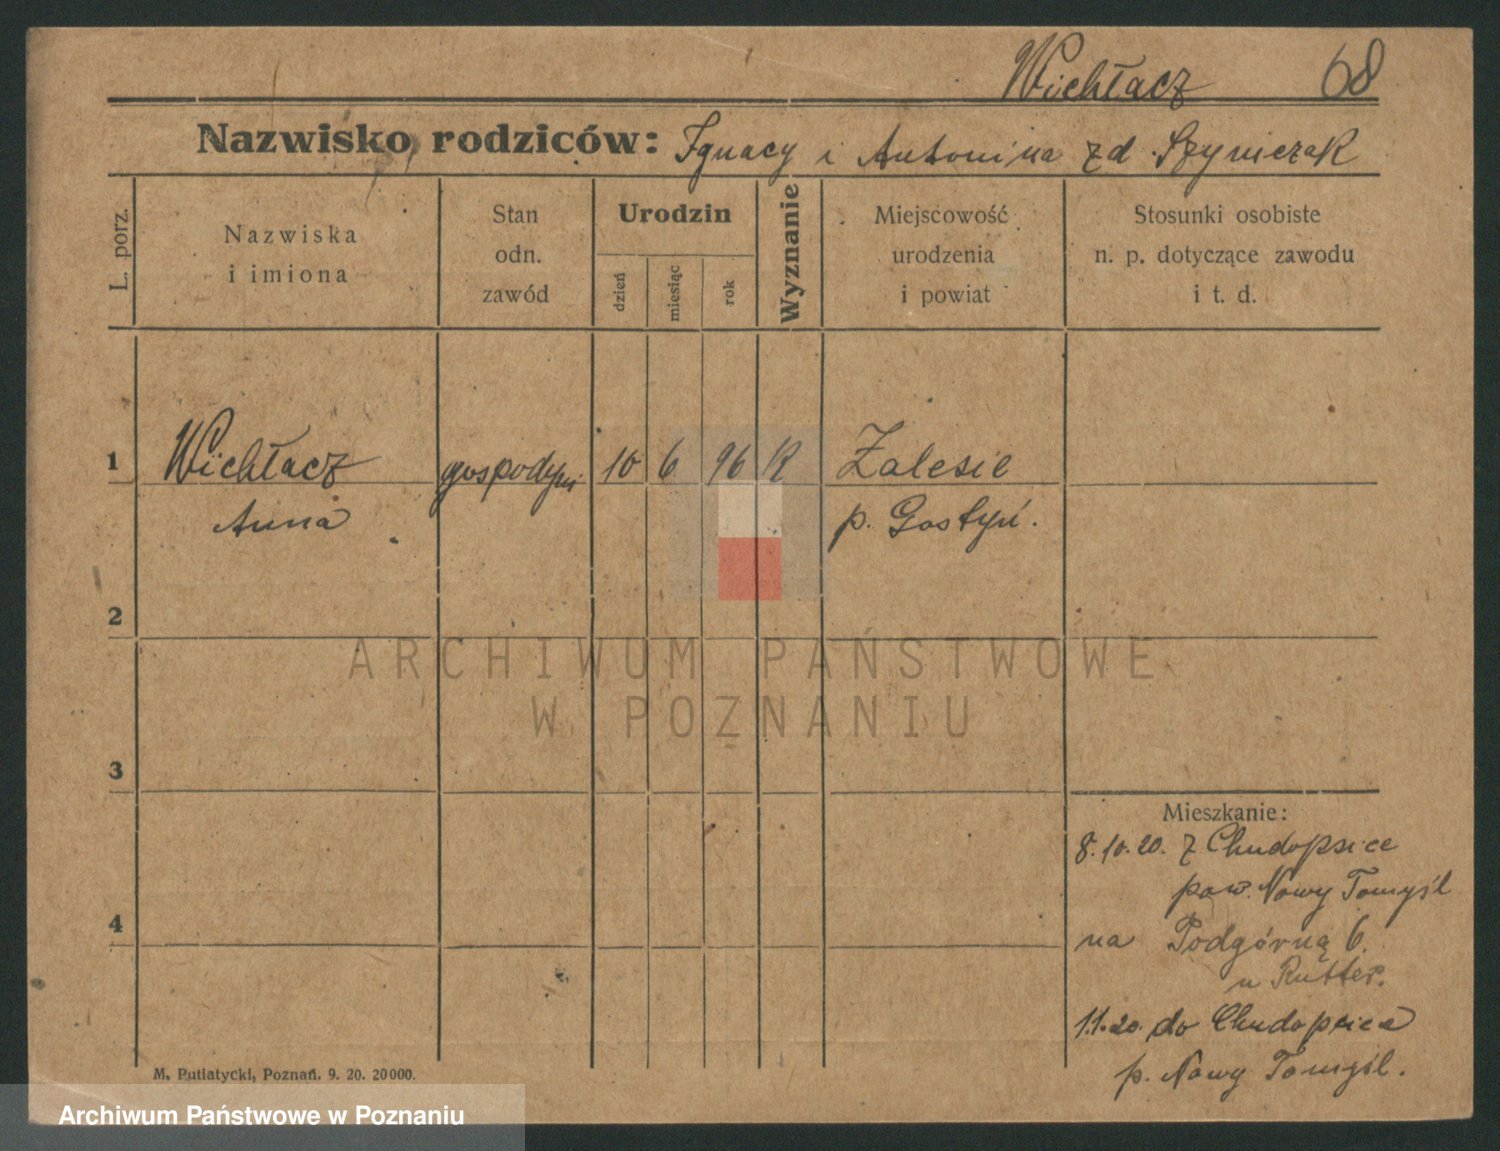 Wichłacz 68
Nazwisko rodziców: Ignacy i Antonina zd. Szymczak
L. porz.
Nazwiska
i imiona
Stan
odn.
zawód
Urodzin
dzień
miesiąc
rok
Wyznanie
Miejscowość
urodzenia
i powiat
Stosunki osobiste
n. p. dotyczące zawodu
i t. d.
1 Wichłacz gospodyni 10 6 96 K Zalesie
Anna p. Gostyń.
2
3
4
Mieszkanie:
8.10.20. z Chudopsice
pow. Nowy Tomyśl
na Podgórną 6.
u Rutter.
1.1.20. do Chudopsica
p. Nowy Tomyśl.
M. Putiatycki, Poznań. 9. 20. 20000.
ARCHIWUM PAŃSTWOWE
W POZNANIU
Archiwum Państwowe w Poznaniu